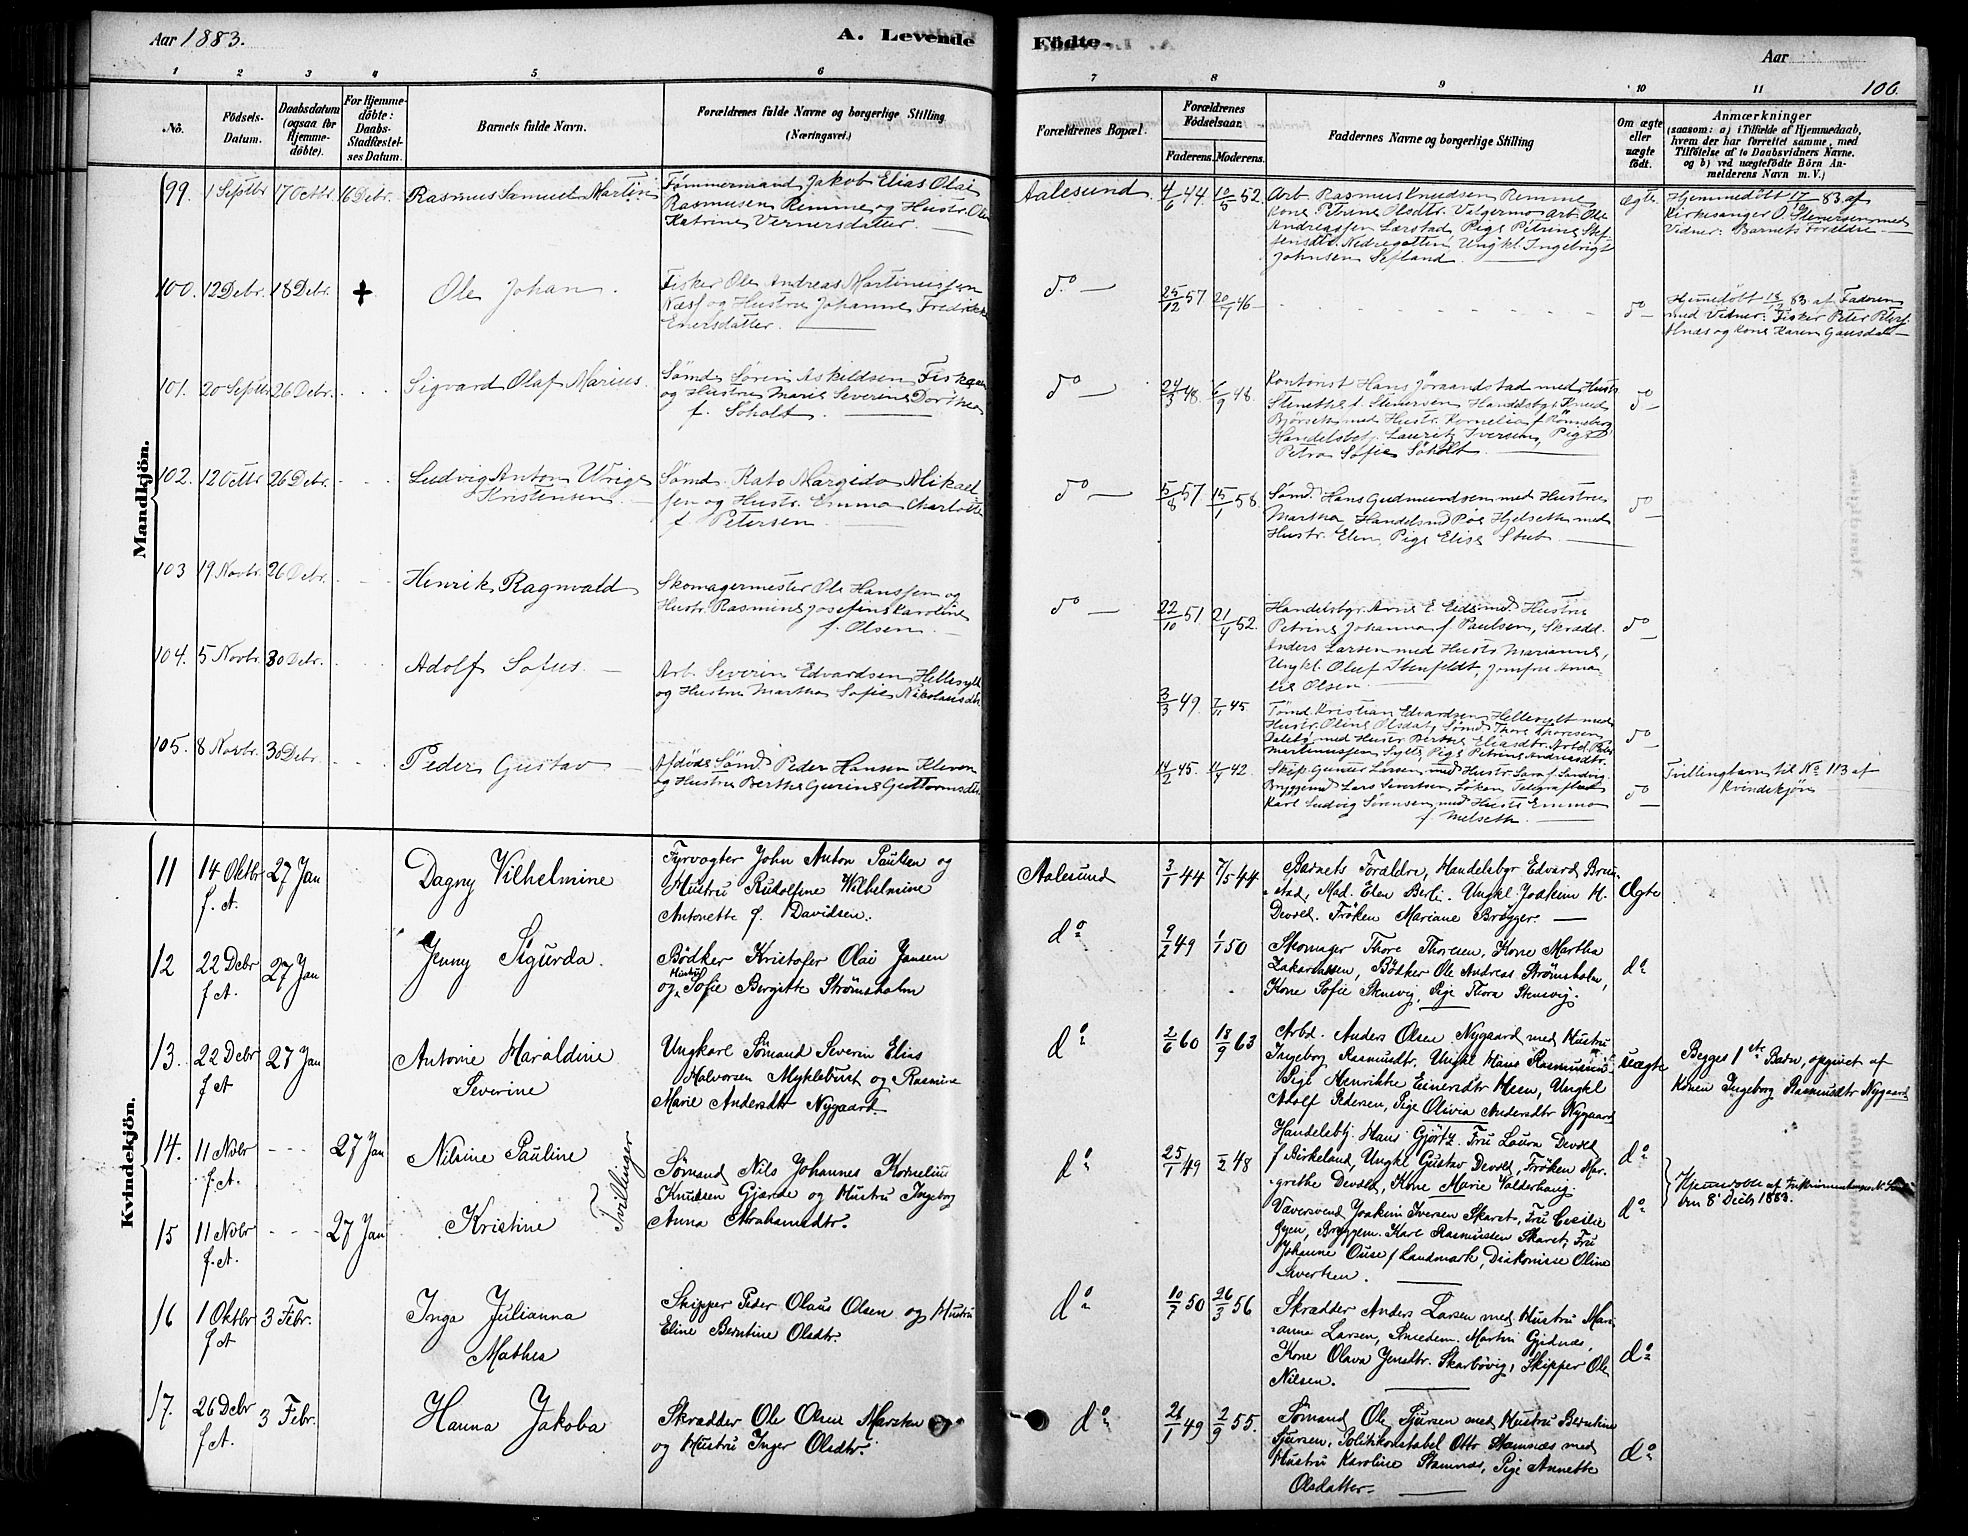 Aar 1883.
A. Levende
Födte.
Aar
106
1 2 3 4 5 6 7 8 9 10 11
No.
Födsels-Datum.
Daabsdatum (ogsaa for Hjemme-döbte).
For Hjemme-döbte: Daabs-Stadfæstel-ses Datum.
Barnets fulde Navn.
Forældrenes fulde Navne og borgerlige Stilling (Næringsvei.)
Forældrenes Bopæl.
Forældrenes Födselsaar.
Faderens. Moderens.
Faddernes Navne og borgerlige Stilling
Om ægte eller uægte födt.
Anmærkninger
(saasom: a) i Tilfælde af Hjemmedaab, hvem der har forrettet samme, med Tilföielse af to Daabsvidners Navne. og b) ved uægtefödte Börn An-melderens Navn m. V.)
Mandkjön.
99. 1 Septbr 17 Octbr. 16 Debr. Rasmus Samuel Martin
Tømmermand Jakob Elias Olai
Rasmusen Remme og Hustr. Oline
Katrine Vernersdatter.
Aalesund 4/6 44 10/5 52
Arb. Rasmus Knudsen Remme
Kone Petrine
Andreassen Lerstad, Pige Petrine
Johnsen Sefland.
ægte
Hjemmedöbt 17/10 83 af
Kirkesanger O. Stenersen med
Vidner: Barnets Foreldre.
100. 12 Debr. 18 Debr. + Ole Johan.
Fisker Ole Andreas Martinussen
Næss og Hustru Johanne Fredrikke
Enersdatter.
do 25/12 57 20/7 46
do
Hjemedöbt 18/12 83 af Faderen
med Vidner: Fisker Peter
og Kone Karen
101. 20 Septbr 26 Debr. Sigvard Olaf Marius.
Sømd. Søren Askildsen
og Hustru Marie Severine Dorthea
f. Søholt.
do 24/3 48. 6/9 48.
Kontorist Hans
f. Stenersen Handelsbgr. Knud
Bjørseth med Hustr. Kornelia f. Rønneberg
Handelsbet. Lauritz Iversen, Pige
Petra Sofie Søholt.
do
102. 12 Octbr 26 Debr. Ludvig Anton
Kristensen
Sømd. Kato Margido Mikael-
sen og Hustr. Emma Charlotte
f. Petersen.
do 5/8 57 15/1 58.
Sømd. Hans Gudmundsen med Hustru
Martha, Handelsmd Hjelseth med
Hustr. Elen, Pige Elise Stub.
do
103 19 Novbr. 26 Debr. Henrik Ragnvald
Skomagermester Ole Hanssen og
Hustr. Rasmine Josefine Karoline
f. Olsen.
do 22/10 51. 21/4 52.
Handelsbgr. Arne E. Eide med Hustru
Petrine Johanna f. Paulsen, Skrædd.
Anders Larsen med Hustr Marianne,
Ungkl. Oluf Ibenfeldt, Jomfru Ama-
lie Olsen
do
104. 5 Novbr. 30 Debr. Adolf Sofus.
Arb. Severin Edvardsen Hellesylt
og Hustru Martha Sofie Nikolausdtr.
3/3 49. 7/11 45
Tømd. Kristian Edvardsen Hellesylt med
Hustr. Oline Olsdat, Sømd. Thore Thoresen
med Hustr. Berthe Eliasdtr. Arbd.
Martinussen, Pige Petrine Andreasdtr.
do
105. 8 Novbr. 30 Debr. Peder Gustav
Afdøde Sømd Peder Hansen Kleven
og Hustru Berthe Gurine Guttormsdtr
14/2 45. 11/4 42.
Skip. Gunter Larsen med Hustr. Sara f. Sandvig.
Bryggemd. Lars Sivertsen Løken
Karl Ludvig Sørensen med Hustr. Emma
f. Melseth.
do
Tvillingbarn til No 113 af
Kvindekjön
Kvindekjön.
11 14 Oktbr f. A. 27 Jan Dagny Vilhelmine
Fyrvogter John Anton Paulsen og
Hustru Rudolfine Wilhelmine
Antonette f. Davidsen.
Aalesund 3/1 44 7/5 44
Barnets Forældre, Handelsbgr Edvard Bru-
stad, Mad. Elen Berli. Ungkl. Joakim H.
Devold. Frøken Mariane Brøgger.
Ægte
12 22 Debr f. A. 27 Jan Jenny Sigurda.
Bödker Kristofer Olai Jansen
og Hustru Sofie Bergitte Strömsholm
do 9/2 49 1/1 50
Skomager Thore Thoresen, Kone Martha
Zakariassen, Bödker Ole Andreas Strömsholm,
Kone Sofie Stensvig, Pige Thora Stensvig.
do
13. 22 Debr f. A 27 Jan Antonie Haraldine
Severine
Ungkarl Sömand Severin Elias
Halvorsen Myklebust og Rasmine
Marie Andersdtr Nygaard
do 2/6 60 18/9 63
Arbd. Anders Olsen Nygaard med Hustru
Ingeborg Rasmusdtr, Ungkl Hans Rasmussen
Pige Henrikke Einersdtr Hesn, Ungkl
Adolf Pedersen, Pige Olivia Andersdtr Nygaard
uægte
Begges 1ste Barn, opgivet af
Konen Ingeborg Rasmusdtr Nygaard
14. 11 Novbr f. A. - - - 27 Jan Nilsine Pauline
Tvillinger
Sömand Nils Johannes Kornelius
Knutsen Gjærde og Hustru Ingeborg
Anna Abrahamsdtr.
do 25/1 49 1/2 48
Handelsbtj. Hans Gjörtz. Fru Laura Devold
f Birkeland, Ungkl Gustav Devold, Fröken Mar-
grethe Devold, Kone Marie Valderhaug.
do
Hjemdöbte af
den 8de Decbr 1883.
15 11 Novbr f. A. - - - 27 Jan Kristine
Væversvend Joakim Iversen Skaret, Fru Cecilie
Gyen, Bryggem. Karl Rasmussen Skaret, Fru
Johanne Ouse f Landmark, Diakonisse Oline
Sivertsen.
do
16 1 Oktbr f. A 3 Febr. Inga Julianna
Mathea
Skipper Peder Olaus Olsen og Hustru
Eline Berntine Olsdtr.
do 10/7 50 26/3 56
Skrædder Anders Larsen med Hustru Mari-
anna Larsen, Smedem. Martin Gjidnæs,
Kone Olava Jensdtr. Skarbövig, Skipper Ole
Nilsen.
do
17. 26 Debr f. A. 3 Febr. Hanna Jakoba
Skrædder Ole Olsen Marsten
og Hustru Inger Olsdtr.
do 26/1 49 2/9 55.
Sömand Ole Sjursen med Hustru Berntine
Sjursen, Politikonstabel Otto Stamnæs med
Hustru Karoline Stamnæs, Pige Annette
Olsdatter.
do